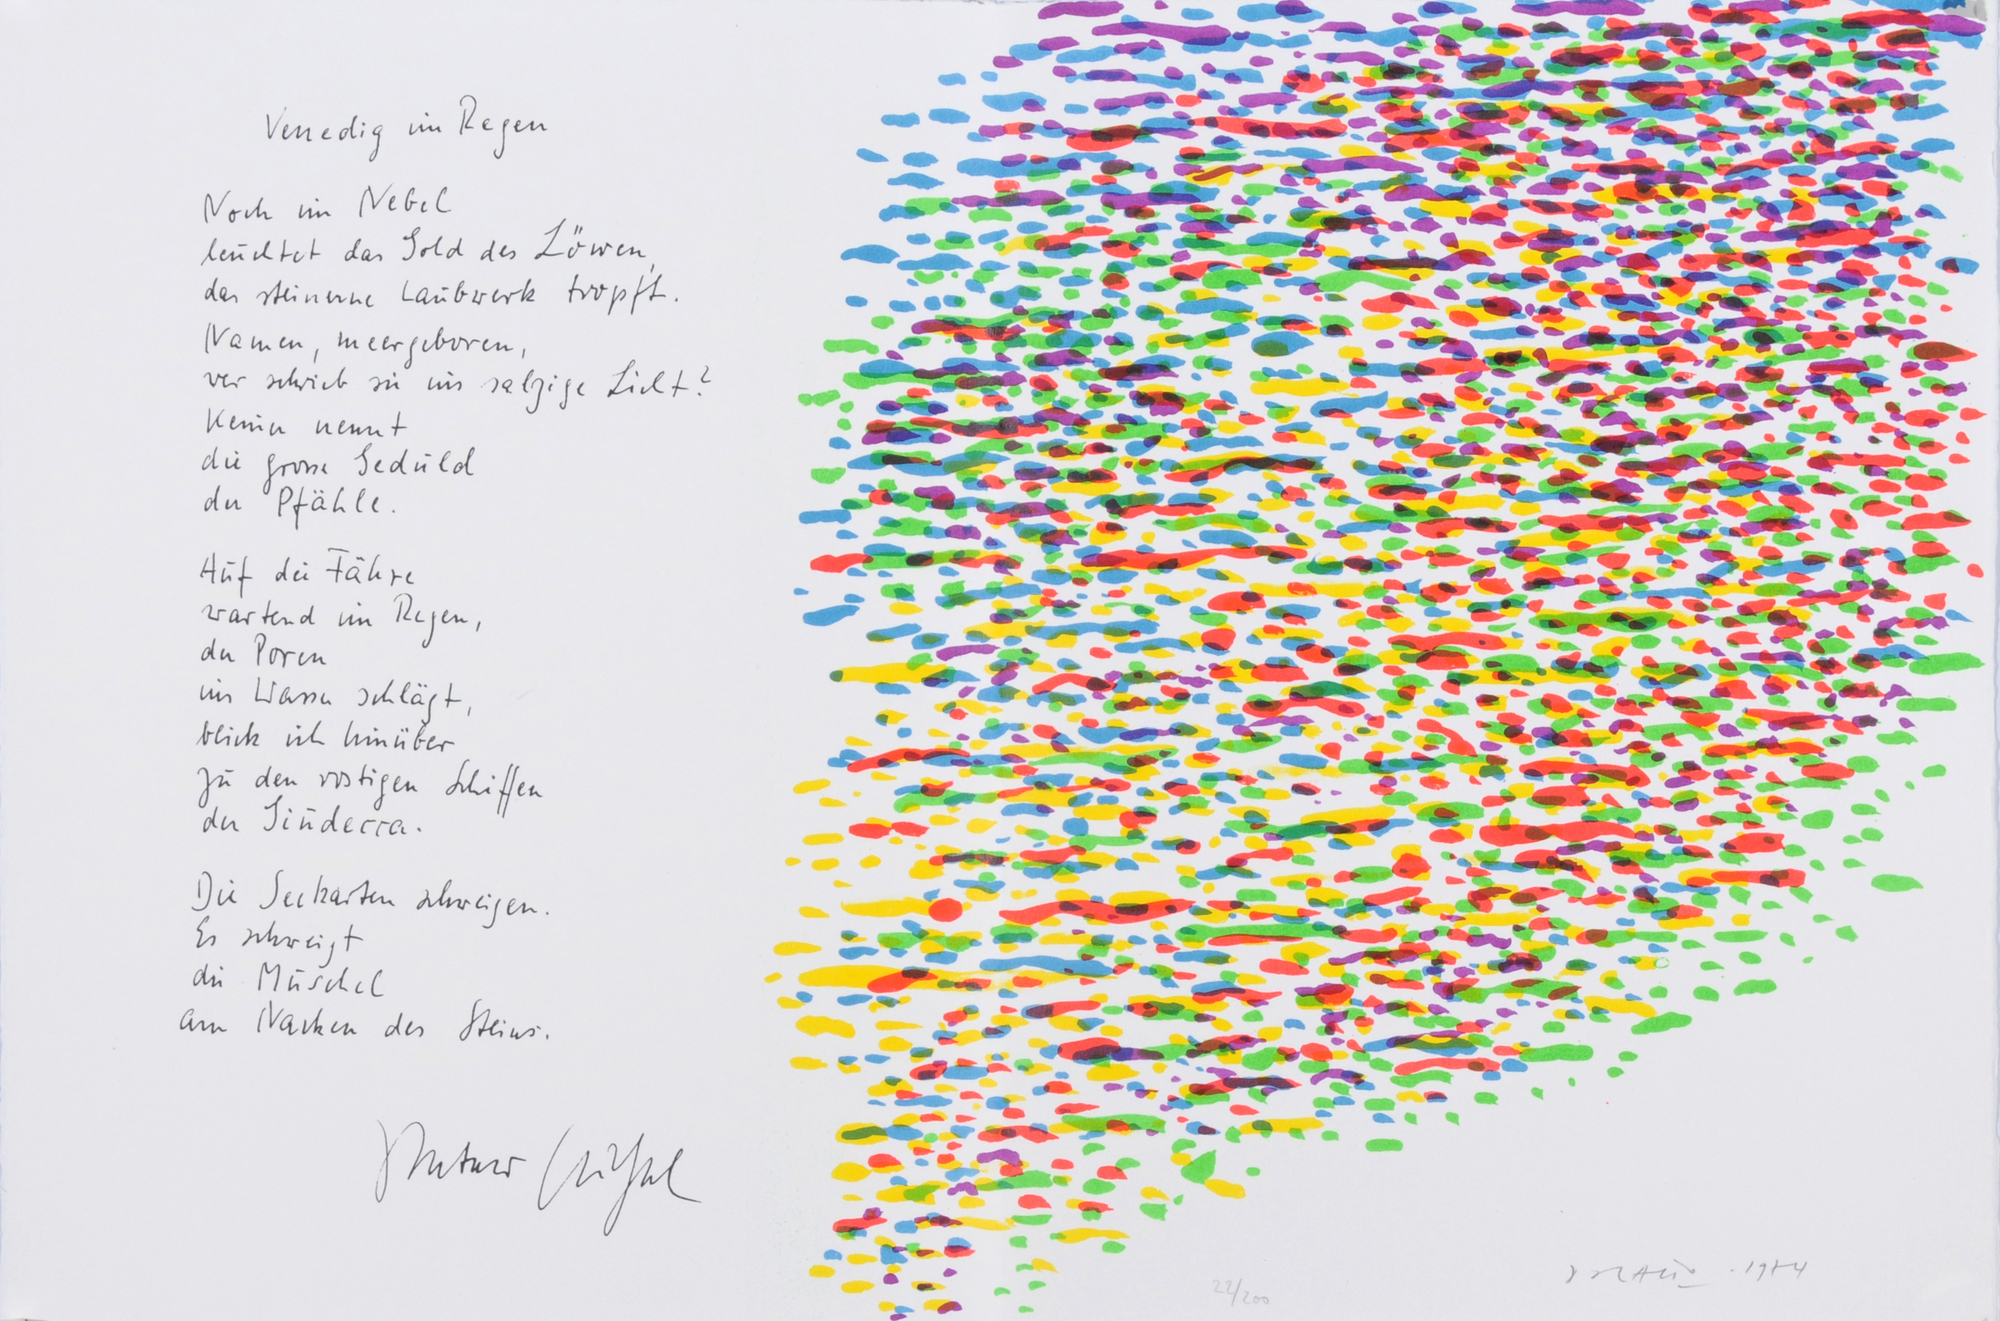 Venedig im Regen
Noch im Nebel
leuchtet das Gold des Löwen,
das steinerne Laubwerk tropft.
Namen, meergeboren,
wer schrieb sie ins salzige Licht?
Keiner nennt
die grosse Geduld
der Pfähle.
Auf die Fähre
wartend im Regen,
der Poren
ins Wasser schlägt,
blick ich hinüber
zu den rostigen Schiffen
der Giudecca.
Die Seekarten schweigen.
Es schweigt
die Muschel
am Nacken des Steins.
22/200
1984